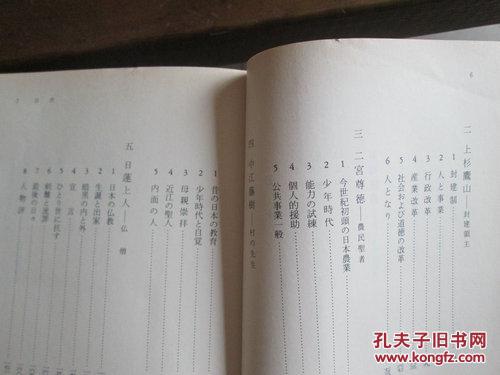 6
二 上杉鷹山——封建領主
1 封建制
2 人と事業
3 行政改革
4 産業改革
5 社会および道徳の改革
6 人となり
三 二宮尊徳——農民聖者
1 今世紀初頭の日本農業
2 少年時代
3 能力の試練
4 個人的援助
5 公共事業一般
四 中江藤樹——村の先生
1 昔の日本の教育
2 少年時代と自覚
3 母親崇拝
4 近江の聖人
5 内面の人
五 日蓮上人——仏僧
1 日本の仏教
2 生誕と出家
3 暗黒の内と外
4 宣言
5 ひとり世に抗す
6 剣難と流罪
7 最後の日々
8 人物評
7 目次
孔夫子旧书网
www.kongfz.com